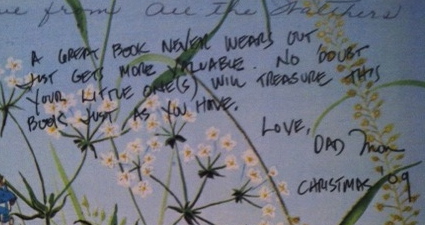 from all the Butchers
A GREAT BOOK NEVER WEARS OUT
JUST GETS MORE VALUABLE. NO DOUBT
YOUR LITTLE ONE(S) WILL TREASURE THIS
BOOK JUST AS YOU HAVE.
LOVE,
DAD Mom
CHRISTMAS 09